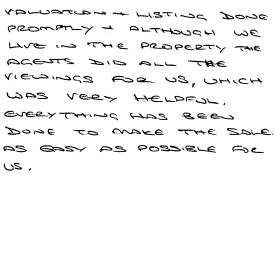 VALUATION + LISTING DONE
PROMPTLY + ALTHOUGH WE
LIVE IN THE PROPERTY THE
AGENTS DID ALL THE
VIEWINGS FOR US, WHICH
WAS VERY HELPFUL.
EVERYTHING HAS BEEN
DONE TO MAKE THE SALE
AS EASY AS POSSIBLE FOR
US.